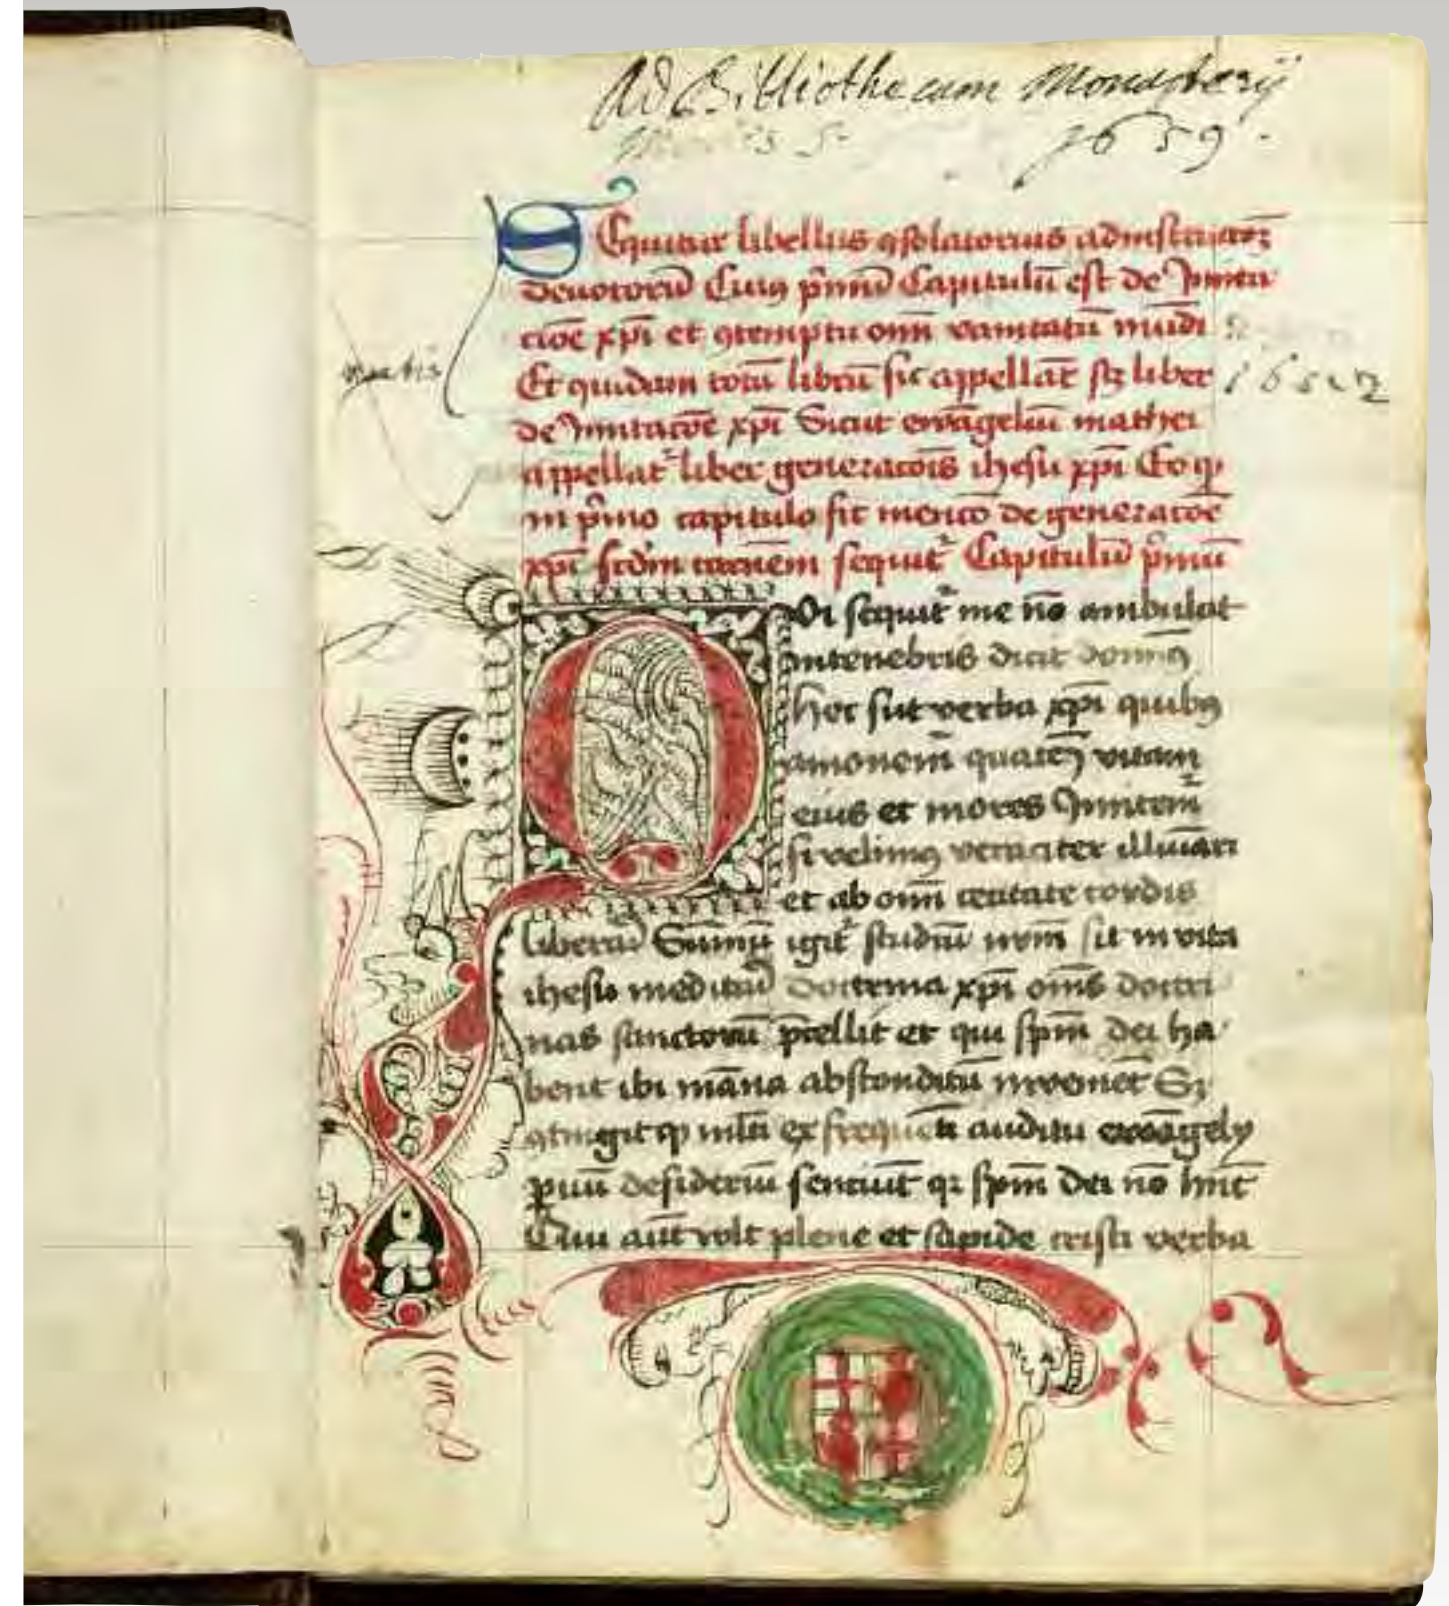 Ad Bibliothecam Monasterij
1659.
Sequitur libellus ꝯsolatorius ad instructōꝫ
devotorū Cuiꝰ pͥmū Capitulū est de Imita
cioē xp̄i et ꝯtemptu om̄i vanitatū mūdi
Et quidam totū librū sic appellāt sꝫ liber
de Imitacōe xp̄i Sicut ewāgeliū mathei
appellatᷣ liber generacōis ihesu xp̄i Eo qꝫ
in pͥmo capitulo fit mentō de generacōe
xp̄i scd̄m carnem sequitᷣ Capitulū pͥmū
Qvi sequitᷣ me nō ambulat
in tenebris dicit domīꝰ
hec sūt verba xp̄i quibꝰ
amonemᷣ quatēꝰ vitam
eius et mores Imitemᷣ
si velimꝰ veraciter illūīari
et ab om̄i cecitate cordis
liberari Sūmū igitᷣ studiū nr̄m sit in vita
ihesu meditari doctrina xp̄i om̄s doctri
nas sanctorū p̄cellit et qui sp̄m dei ha
bent ibi māna absconditū inveniet Sꝫ
ꝯtingit qꝫ ml̄ti ex frequēti auditu ewāgelij
ꝑvū desideriū senciūt qꝛ sp̄m dei nō hn̄t
Qui aūt vult plene et sapide cristi verba